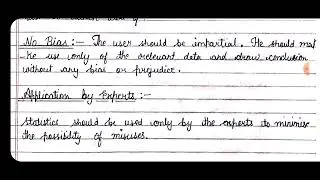 No Bias :- The user should be impartial. He should mat
ke use only of the relevant data and draw conclusion
without any bias or prejudice.
Application by Experts :-
Statistics should be used only by the experts to minimise
the possibility of misuses.